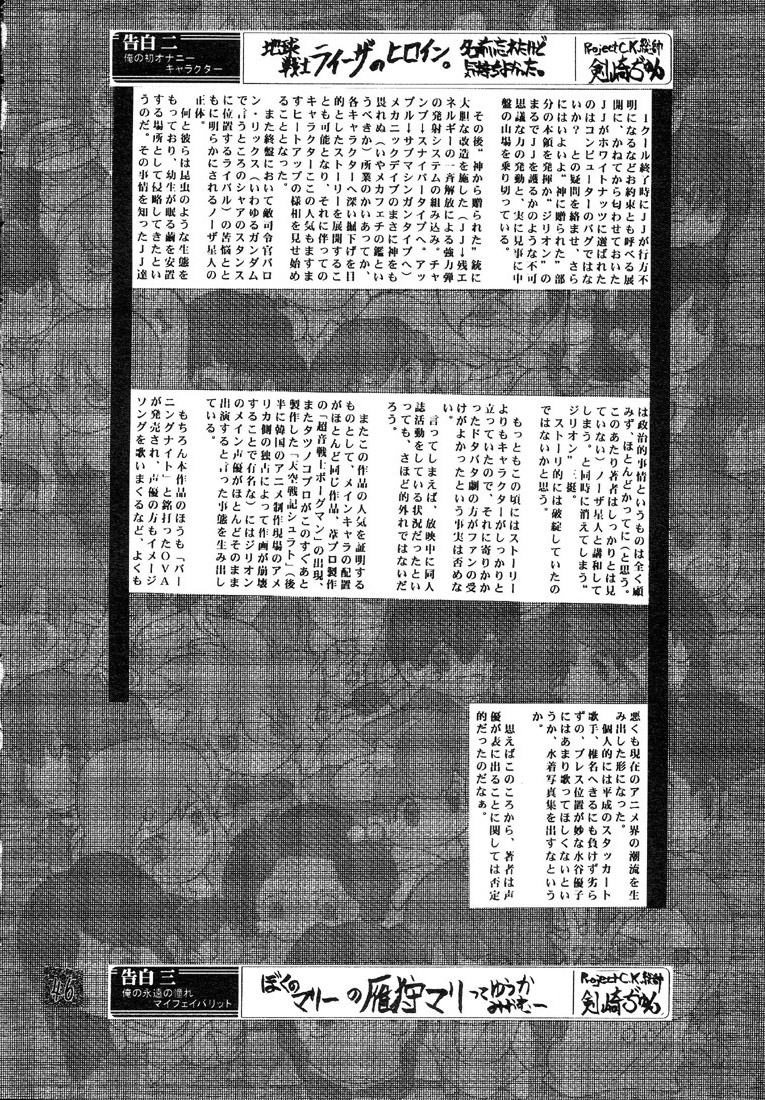 告白 二
俺の初オナニー
キャラクター
地球
戦士ライーザのヒロイン。
名前忘れたけど
気持ちよかった。
Project C.K.総帥
剣崎
1クール終了時にJJが行方不
明になるなどお約束とも呼べる展
開に、かねてから匂わせておいた
JJがホワイトナッツに選ばれた
のはコンピューターのバグではな
いか？ との疑問を絡ませ、さら
にはいよいよ"神に贈られた"部
分の本領を発揮か"ジリオン"の
まるでJJを護るかのような不可
思議な力の発動と、実に見事に中
盤の山場を乗り切っている。
その後"神から贈られた"銃に
大胆な改造を施した（JJ→残エ
ネルギーの一斉解放による強力弾
の発射システムの組み込み。チャ
ンプ→スナイパータイプへ。アッ
プル→サブマシンガンタイプへ）
メカニックデイブのまさに神をも
畏れぬ（いやメカフェチの鑑とい
うべきか）所業のかいあってか、
各キャラクターへ深い掘下げを目
的としたストーリーを展開するこ
とも可能となり、それに伴っての
キャラクターごとの人気もますま
すヒートアップの様相を見せ始め
ることとなった。
また終盤において敵司令官バロ
ン・リックス（いわゆるガンダム
で言うところのシャアのスタンス
に位置するライバル）の苦悩とと
もに明らかにされるノーザ星人の
正体。
何と彼らは昆虫のような生態を
もっており、幼生が眠る繭を安置
する場所として侵略してきたとい
うのだ。その事情を知ったJJ達
は政治的事情というものは全く顧
みず、ほとんどかってに（と思う。
このあたり著者はしっかりとは見
ていない）ノーザ星人と講和して
しまう。と同時に消えてしまう"
ジリオン"三挺。
ストーリ的には破綻していたの
ではないかと思う。
もっともこの頃にはストーリー
よりもキャラクターがしっかりと
立っていたので、それに寄りかか
ったドタバタ劇の方がファンの受
けがよかったという事実は否めな
い。
言ってしまえば、放映中に同人
誌活動をしている状況だったとい
っても、さほど的外れではないだ
ろう。
またこの作品の人気を証明する
ものとして、メインキャラの配置
がほとんど同じ作品、葦プロ製作
の「超音戦士ボーグマン」の出現、
またタツノコプロがこのすぐあと
製作した「天空戦記シュラト」（後
半に韓国のアニメ制作現場のアメ
リカ側の独占によって作画が崩壊
することで有名な）にはジリオン
のメイン声優がほとんどそのまま
出演すると言った事態を生み出し
ている。
もちろん本作品のほうも「バー
ニングナイト」と銘打ったOVA
が発売され、声優の方もイメージ
ソングを歌いまくるなど、よくも
悪くも現在のアニメ界の潮流を生
み出した形になった。
個人的には平成のスタッカート
歌手、椎名へきるにも負けず劣ら
ずの、ブレス位置が妙な水谷優子
にはあまり歌ってほしくないとい
うか、水着写真集を出すなという
か。
思えばこのころから、著者は声
優が表に出ることに関しては否定
的だったのだなぁ。
46
告白 三
俺の永遠の憧れ
マイフェイバリット
ぼくの
マリーの雁狩マリってゆうか
みかむー
Project C.K.総帥
剣崎